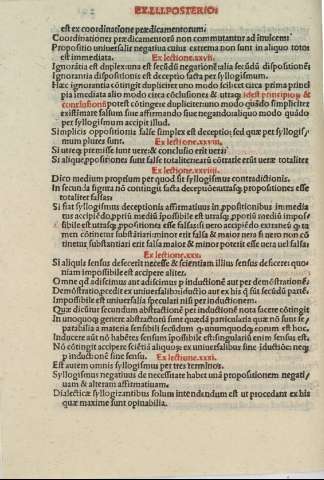 EX.LI.POSTERIO:
est ex coordinatione prædicamentorum.
Coordinationes prædicamentorū non commutantur ad inuicem.
Propositio uniuersalis negatiua cuius extrema non sunt in aliquo toto
est immediata. Ex lectione.xxvii.
Ignorātia est duplex una est secūdū negationē alia secūdū dispositionē
Ignorantia dispositionis est deceptio facta per syllogismum.
Hæc ignorantia cōtingit dupliciter uno modo scilicet circa prima princi
pia immediata alio modo circa cōclusiones & utraq; idest principiorū &
conclusionū potest cōtingere dupliciter uno modo quādo simpliciter
existimat falsum siue affirmando siue negando alio modo quādo
per syllogismum accipit illud.
Simplicis oppositionis false simplex est deceptio: sed quæ per syllogis/
mum plures sunt. Ex lectione.xxviii.
Si utreq; premisse sunt uere: & conclusio erit uera
Si aliquæ ,ppositiones sunt false totaliter earū cōtrarie erūt ueræ totaliter
Ex lectione.xxviiii.
Dico medium proprium per quod fit syllogismus contradictionis.
In secunda figura nō contingit facta deceptiōe utrasq; propositiones esse
totaliter falsas:
Si fiat syllogismus deceptionis affirmatiuus in ,ppositionibus immedia
tus accipiēdo ,ppriū mediū īpossibile est utrasq; ,ppositiones esse falsas: si uero accipiēdo extraneū q; ta
men cōtinetur sub
tinetur substantiari erit falsa maior & minor poterit esse uera uel falsa:
Ex lectione.xxx.
Si aliquis sensus defecerit necesse & scientiam illius sensus deficere quo/
niam impossibile est accipere aliter.
Omne qđ adiscimus aut adiscimus p inductionē aut per demōstrationē.
Demōstratio ,pcedit ex uniuersalib inductio aut ex his q̄ sūt secūdū partē.
Impossibile est uniuersalia speculari nisi per inductionem.
Quæ dicūtur secundum abstractionē per inductionē nota facere cōtingit
In unoquoq; genere abstractorū sunt quædā particularia quæ nō sunt se/
patabilia a materia sensibili secūdum q unumquodq; eorum est hoc.
Inducere aūt nō habētes sensum ipossibile est: singulariū enim sensus est.
Nō cōtingit accipere sciētiā aliquoq; ex uniuersalibus sine iductiōe: neq;
p inductionē sine sensu. Ex lectione.xxxi.
Est autem omnis syllogismus per tres terminos.
Syllogismus negatiuus de necessitate habet unā propositionem negati/
uam & alteram affirmatiuam.
Dialecticæ syllogizantibus solum intendendum est ut procedant ex his
quæ maxime sunt opinabilia.